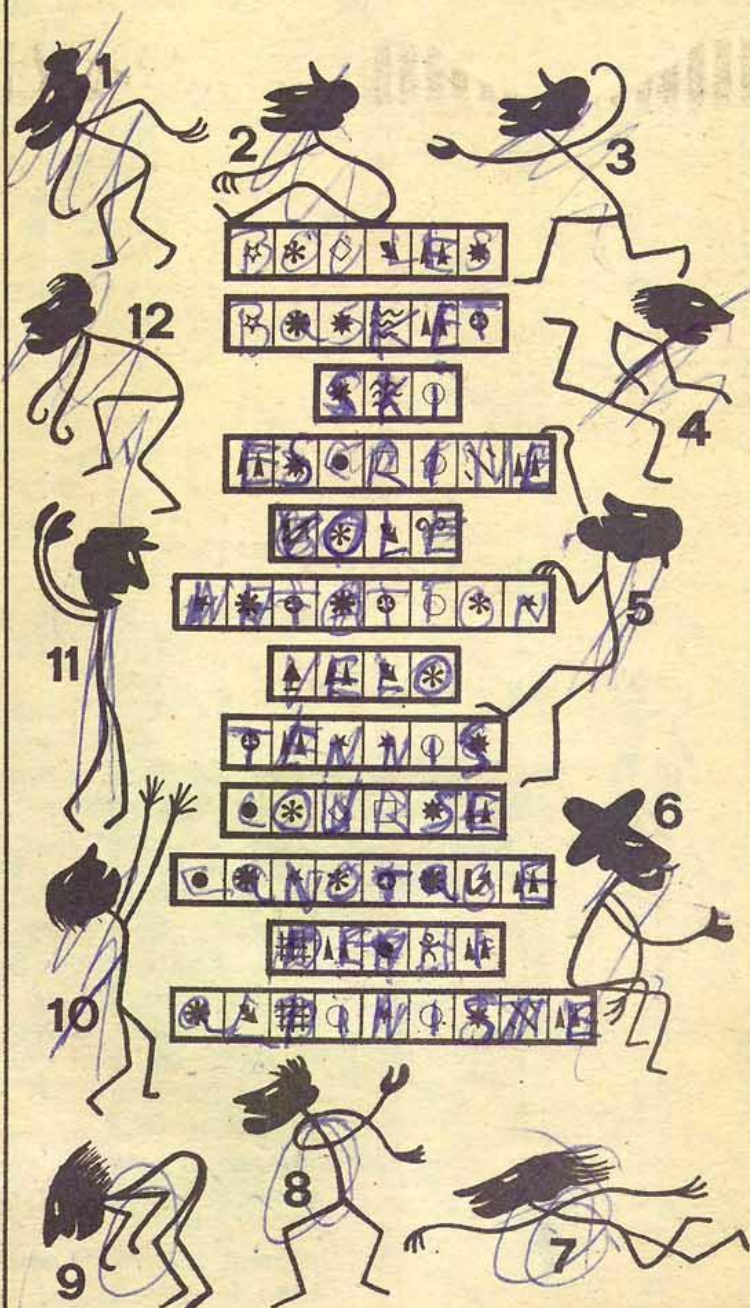 1
2
3
BOULES
12
BASKET
SKI
4
ESCRIME
GOLF
5
NATATION
11
VELO
TENNIS
6
COURSE
CANOTAGE
10
PECHE
ALPINISME
8
7
9